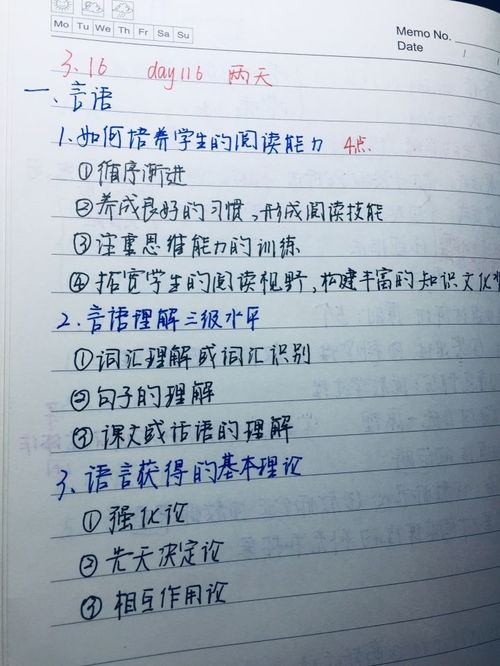 Mo Tu We Th Fr Sa Su
Memo No.
Date / /
3.16 day116 两天
一、言语
1.如何培养学生的阅读能力 4点.
①循序渐进
②养成良好的习惯,形成阅读技能
③注重思维能力的训练
④拓宽学生的阅读视野,构建丰富的知识文化
2.言语理解三级水平
①词汇理解或词汇识别
②句子的理解
③课文或话语的理解
3、语言获得的基本理论
①强化论
②先天决定论
③相互作用论